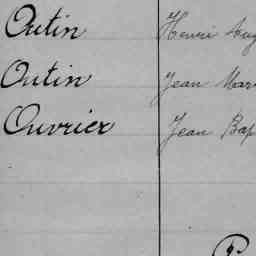 Outin Henri Aug
Outin Jean Mar
Ouvrier Jean Bap
P